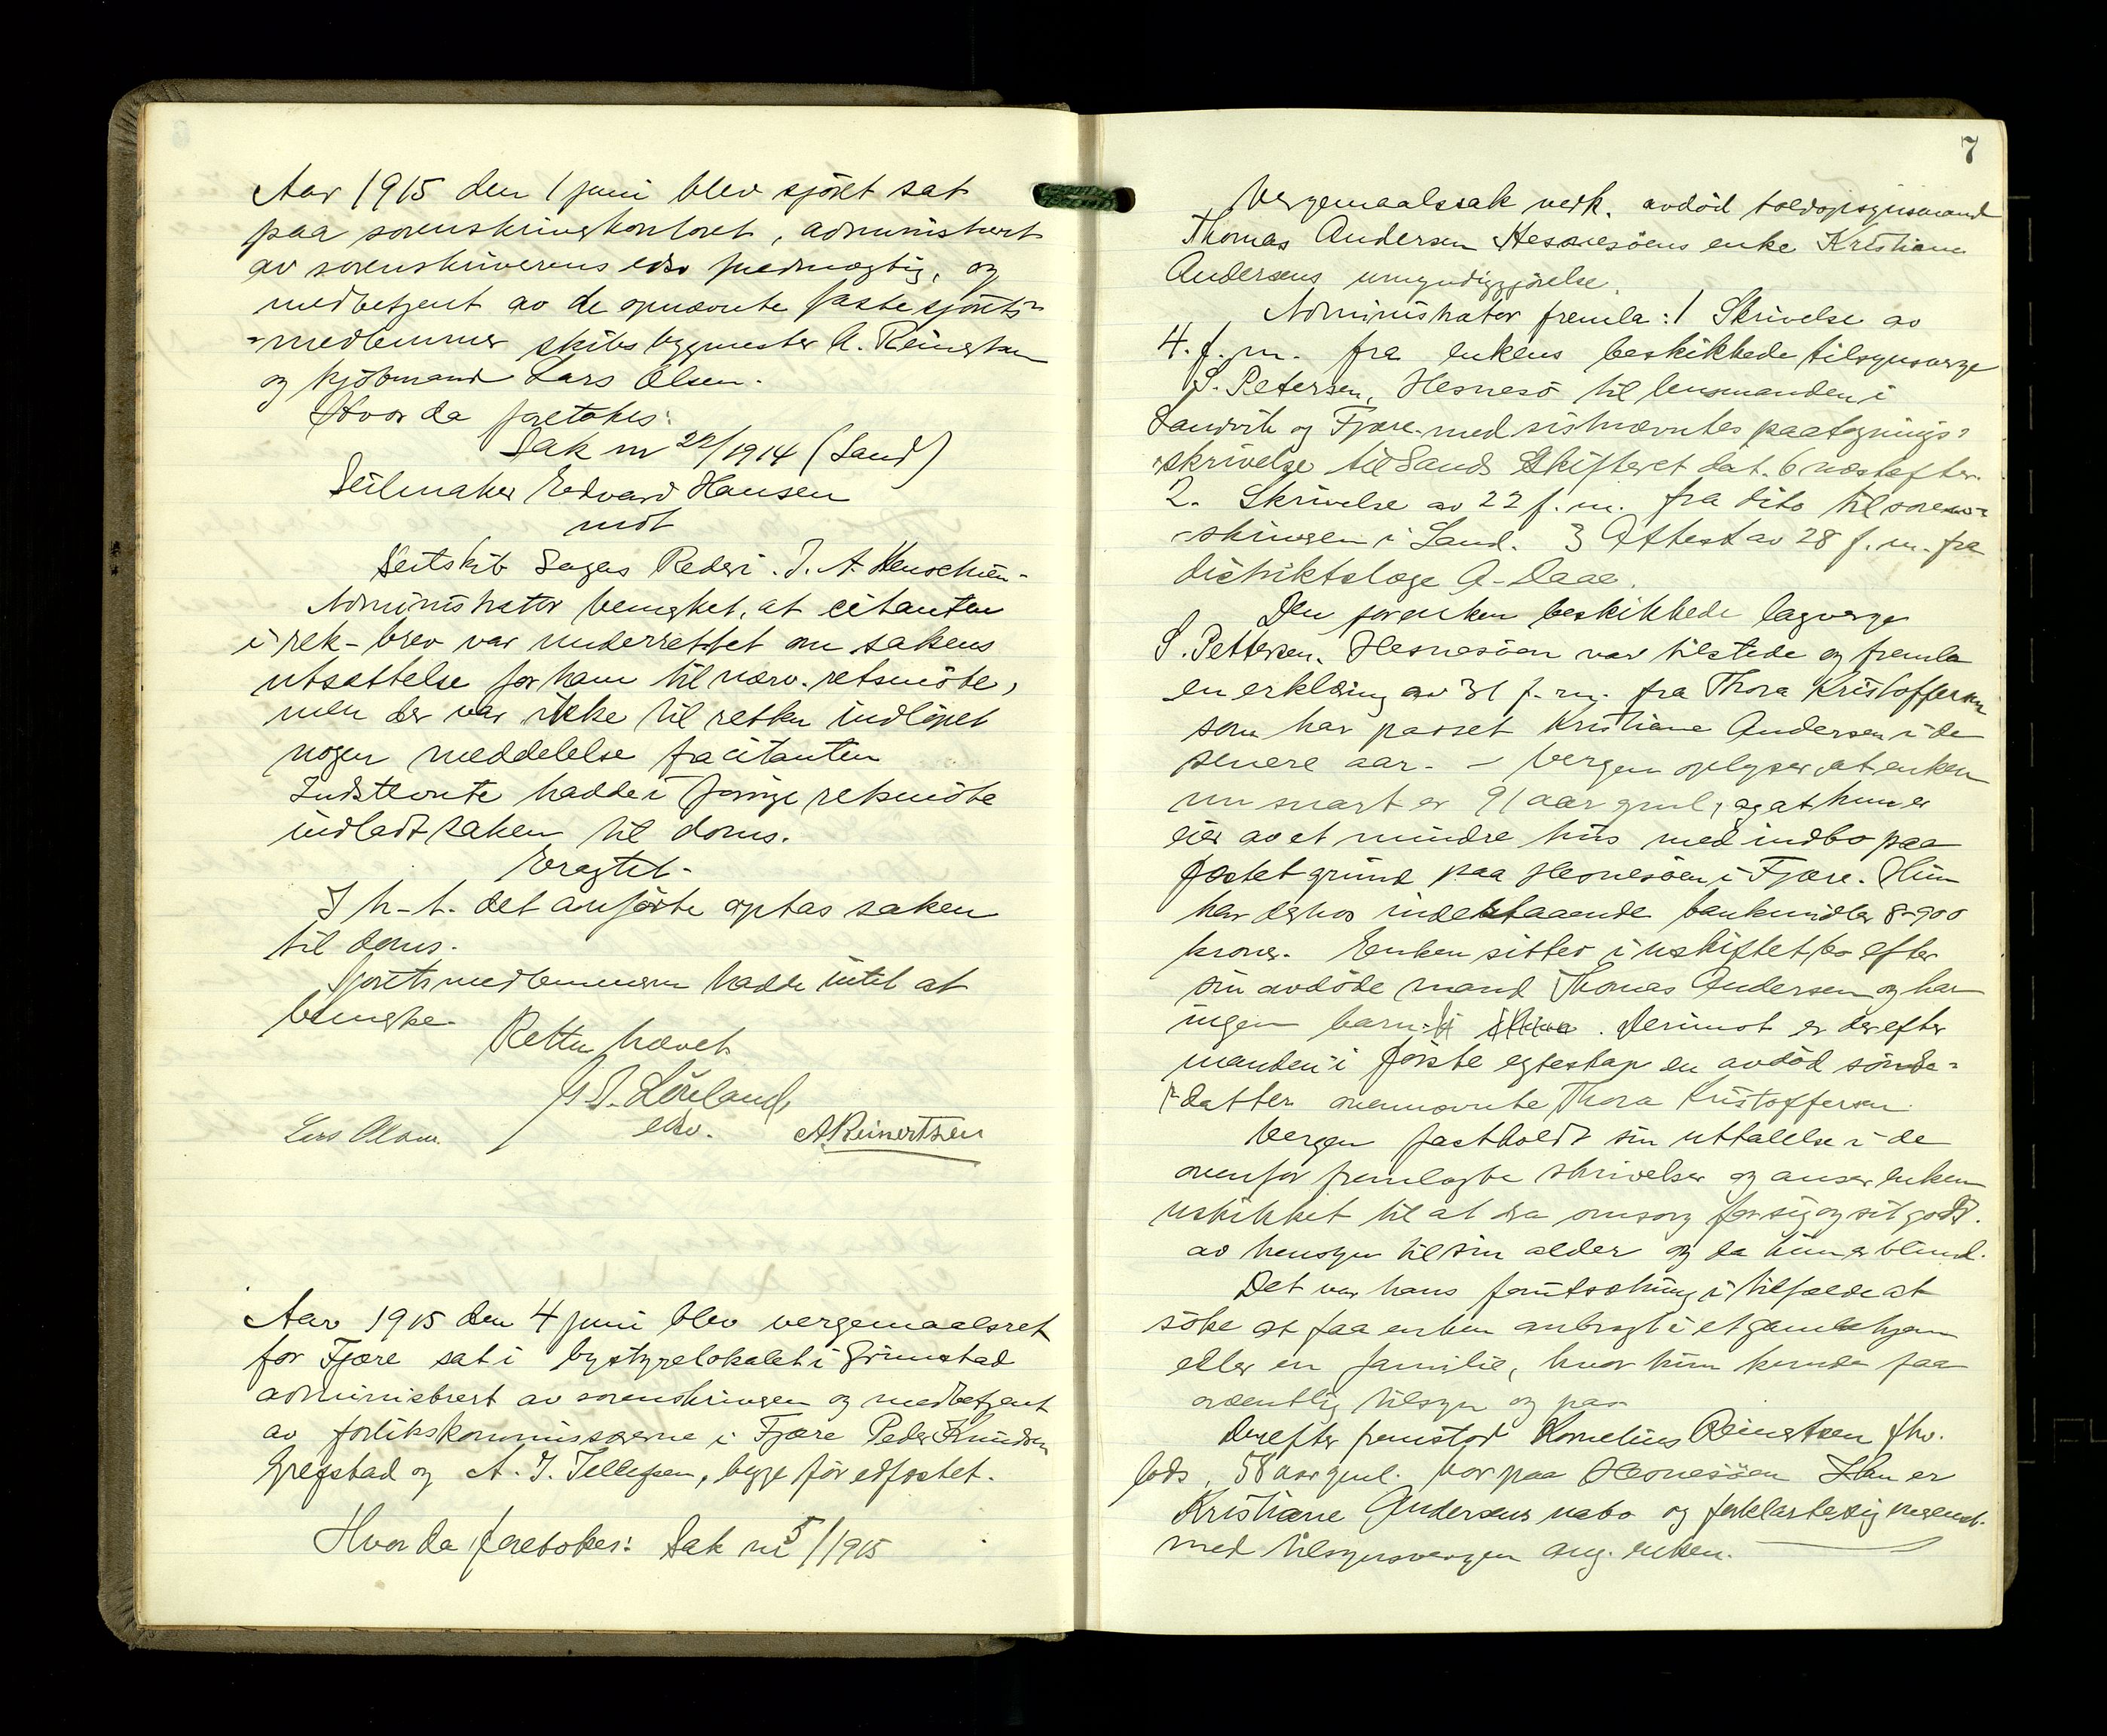 Aar 1915 den 1 juni blev sjöret sat
paa sorenskriverkontoret, administrert
av sorenskriverens edsv fuldmægtig, og
medbetjent av de opnævnte faste sjörets-
-medlemmer skibsbygmester A. Reinertsen
og kjöbmand Lars Olsen.
Hvor da foretokes:
Sak nr 22/1914 (Sand)
Seilmaker Edvard Hansen
mot
Seilskib Sagas Rederi. J. A. Henschien.
Administrator bemerket, at citanten
i rek-brev var underrettet om sakens
utsættelse for ham til nærv. retsmöte,
men der var ikke til retten indlöpet
nogen meddelelse fra citanten
Indstevnte hadde i forrige retsmöte
indladt saken til doms.
Eragtet.
I h-t. det anförte optas saken
til doms.
Sjöretsmedlemmerne hadde intet at
bemerke.
Retten hævet
Löveland
edsv.
Lars Olsen. A Reinertsen
Aar 1915 den 4 juni blev vergemaalsret
for Fjære sat i bystyrelokalet i Grimstad
administrert av sorenskriveren og medbetjent
av forlikskommissærerne i Fjære Peder Knudsen
Grefstad og A. J. Tellefsen, begge för edfæstet.
Hvor da foretokes: Sak nr 5/1915
7
Vergemaalssak vedk. avdöd toldopsynsmand
Thomas Andersen Hesnesöens enke Kristiane
Andersens umyndiggjörelse.
Administrator fremla: 1 Skrivelse av
4. f. m. fra enkens beskikkede tilsynsverge
S. Petersen, Hesnesö til lensmanden i
Landvik og Fjære med sistnævntes paategnings-
-skrivelse til Sand Skifteret dat. 6 næstefter.
2. Skrivelse av 22 f. m. fra dito til soren-
-skriveren i Sand. 3 Attest av 28 f. m. fra
distriktslæge A. Daae.
Den for enken beskikkede lagverge
S. Pettersen, Hesnesöen var tilstede og fremla
en erklæring av 31 f. m. fra Thora Kristoffersen
som har passet Kristiane Andersen i de
senere aar. - Vergen oplyser at enken
nu snart er 91 aar gml, og at hun er
eier av et mindre hus med indbo paa
fæstet grund paa Hesnesöen i Fjære. Hun
har derhos indestaaende bankmidler 8-900
kroner. Enken sitter i uskiftet bo efter
sin avdöde mand Thomas Andersen og har
ingen barn. Derimot er der efter
manden i förste egteskap en avdöd sönne-
-datter ovennævnte Thora Kristoffersen.
Vergen fastholdt sin uttalelse i de
ovenfor fremlagte skrivelser og anser enken
uskikket til at dra omsorg for sig og sit gods.
av hensyn til sin alder og da hun er blind.
Det var hans forutsætning i tilfælde at
söke at faa enken anbragt i et gamlehjem
eller en familie, hvor hun kunde faa
ordentlig tilsyn og pas
Derefter fremstod Kornelius Reinertsen fhv.
lods, 58 aar gml. bor paa Hesnesöen Han er
Kristiane Andersens nabo og forklarte sig overenst.
med tilsynsvergen ang. enken.